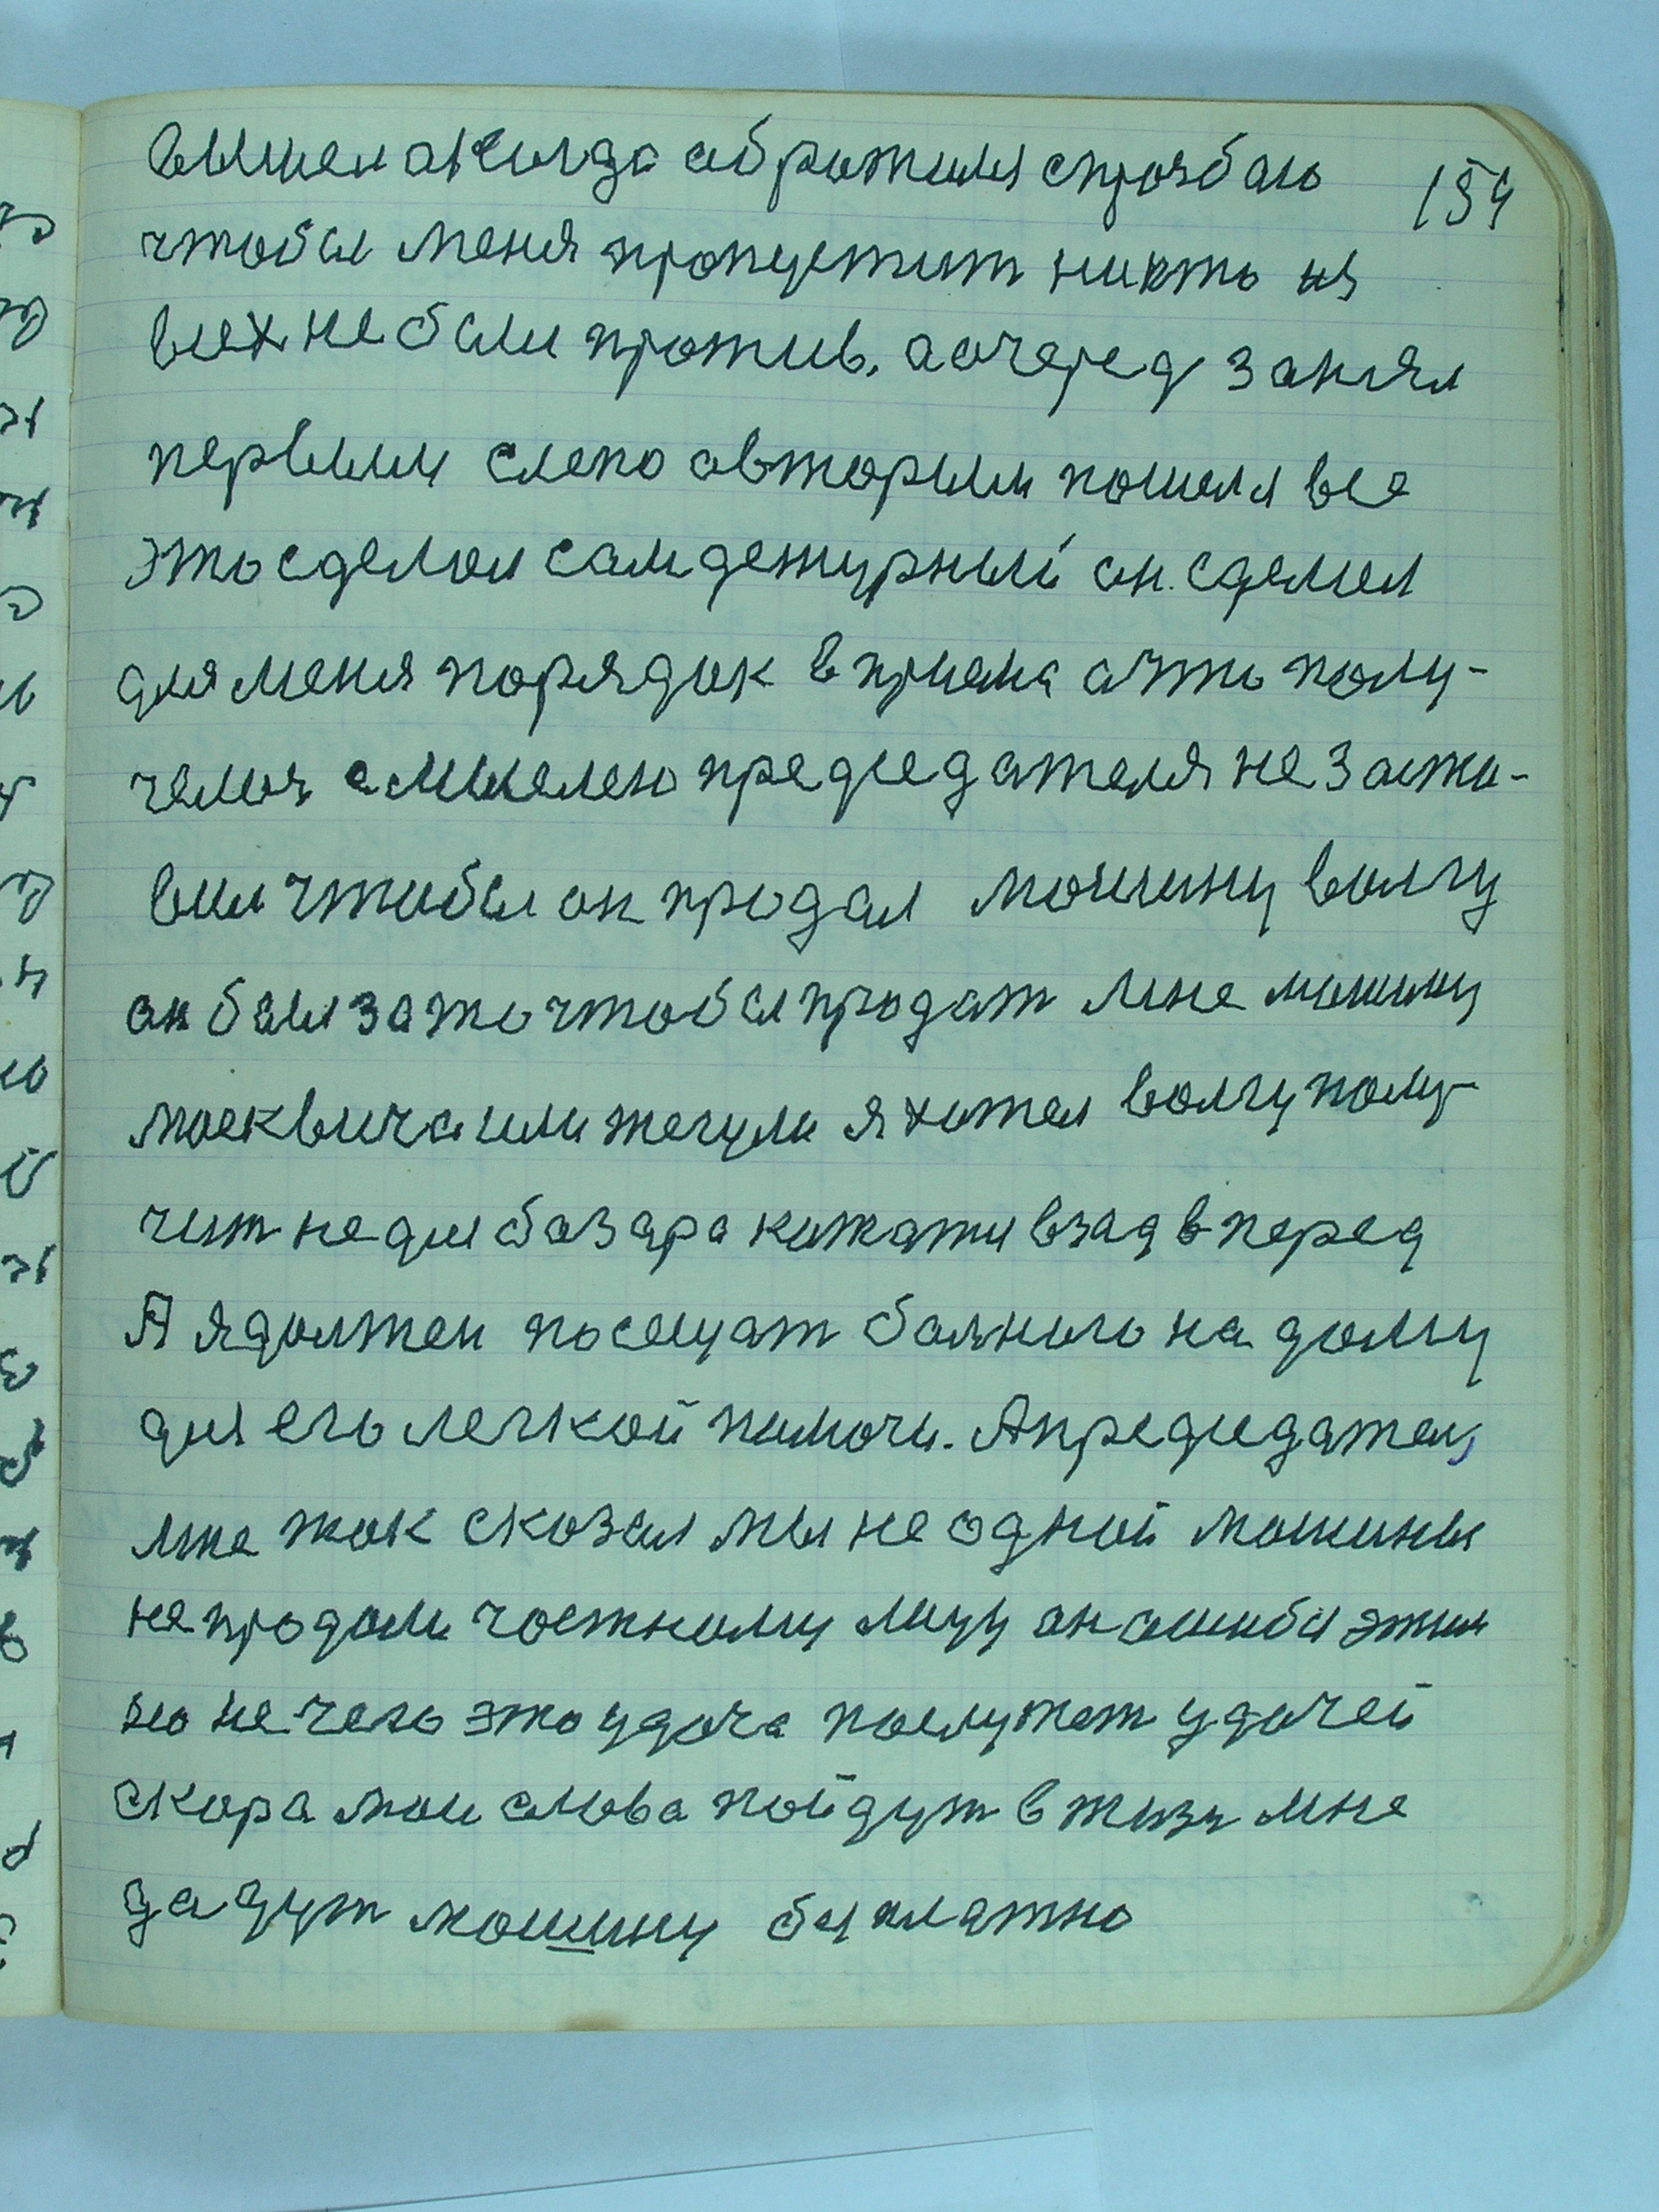 154
вышел а когда обратился спрозбаю
чтобы меня пропустит никто из
всех не были против. а очеред занял
первыми слепо авторым пошел я все
это сделал сам дежурный он. сделал
для меня порядок в приема ачто полу-
чемся смыслею председателя не заста-
вил чтобы он продал мошину волгу
он был за то чтобы продат мне мошину
москвича или жегули я хотел волгу полу-
чит не для базара кататиы взад вперед
А я должен посещат болного на дому
для его легкой помочи. А председател,
мне так сказал мы не одной мошины
не продом чостному лицу он ошибся этим
но не чего это удача послужет удачей
скора мои слова пойдут в жизн мне
дадут мошину бесплатно